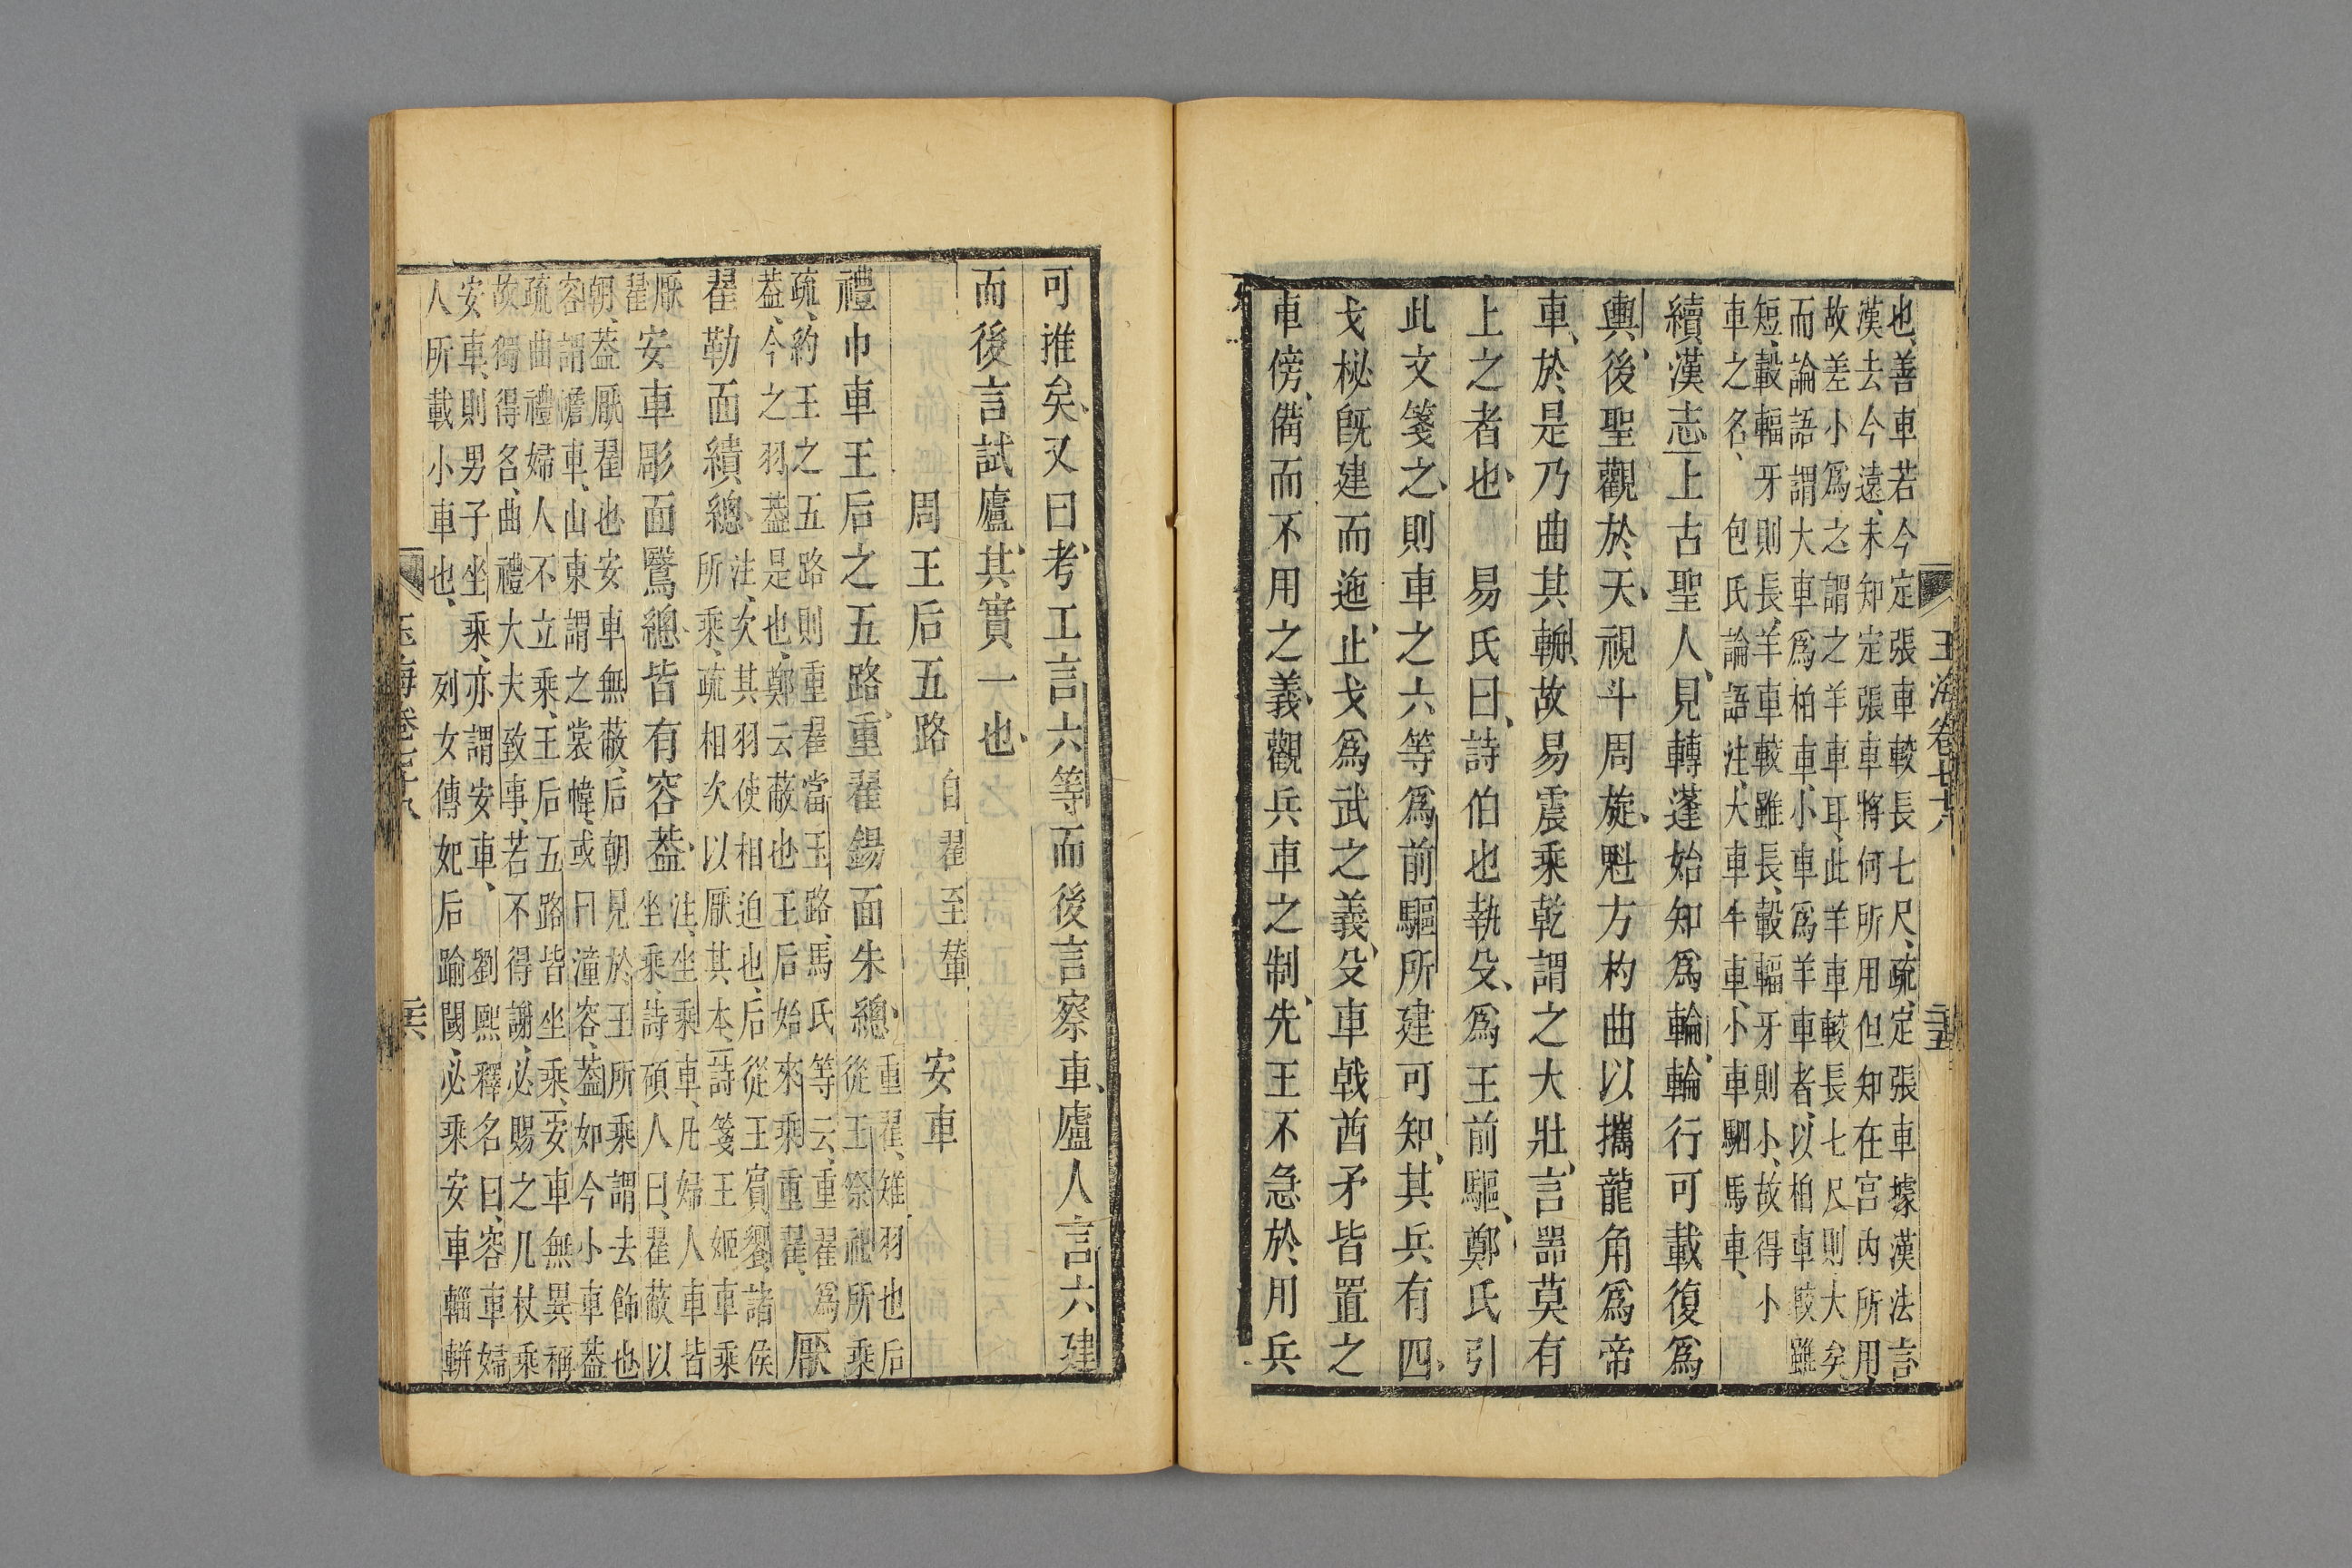 也善車若今定張車較長七尺疏定張車據漢法言
漢去今遠未知定張車將何所用但知在宮內所用
故差小爲之謂之羊車耳此羊車較長七尺則大矣
而論語謂大車爲柏車小車爲羊車者以柏車較雖
短轂輻牙則長羊車較雖長轂輻牙則小故得小
車之名　包氏論語注大車牛車小車駟馬車
續漢志上古聖人見轉蓬始知爲輪輪行可載復爲
輿後聖觀於天視斗周旋魁方杓曲以攜龍角爲帝
車於是乃曲其輈故易震乘乾謂之大壯言噐莫有
上之者也　易氏曰詩伯也執殳爲王前驅鄭氏引
此文箋之則車之六等爲前驅所建可知其兵有四
戈柲旣建而迤止戈爲武之義殳車戟酋矛皆置之
車傍備而不用之義觀兵車之制先王不急於用兵
玉海卷七十八
二十五
可推矣又曰考工言六等而後言察車廬人言六建
而後言試廬其實一也
周王后五路　自翟至輦　安車
禮巾車王后之五路重翟鍚面朱總
重翟雉羽也后
從王祭祀所乘
厭
疏約王之五路則重翟當玉路馬氏等云重翟爲
葢今之羽葢是也鄭云蔽也王后始來乘重翟
翟勒面繢總
注次其羽使相迫也后從王賓饗諸侯
所乘疏相次以厭其本詩箋王姬車乘
厭
翟
安車彫面鷖總皆有容葢
注坐乘車凡婦人車皆
坐乘詩碩人曰翟蔽以
朝葢厭翟也安車無蔽后朝見於王所乘謂去飾也
容謂幨車山東謂之裳幃或曰潼容葢如今小車葢
疏曲禮婦人不立乘王后五路皆坐乘安車無異稱
故獨得名曲禮大夫致事若不得謝必賜之几杖乘
安車則男子坐乘亦謂安車　劉熙釋名曰容車婦
人所載小車也　列女傳妃后踰閾必乘安車輜軿
玉海卷七十八